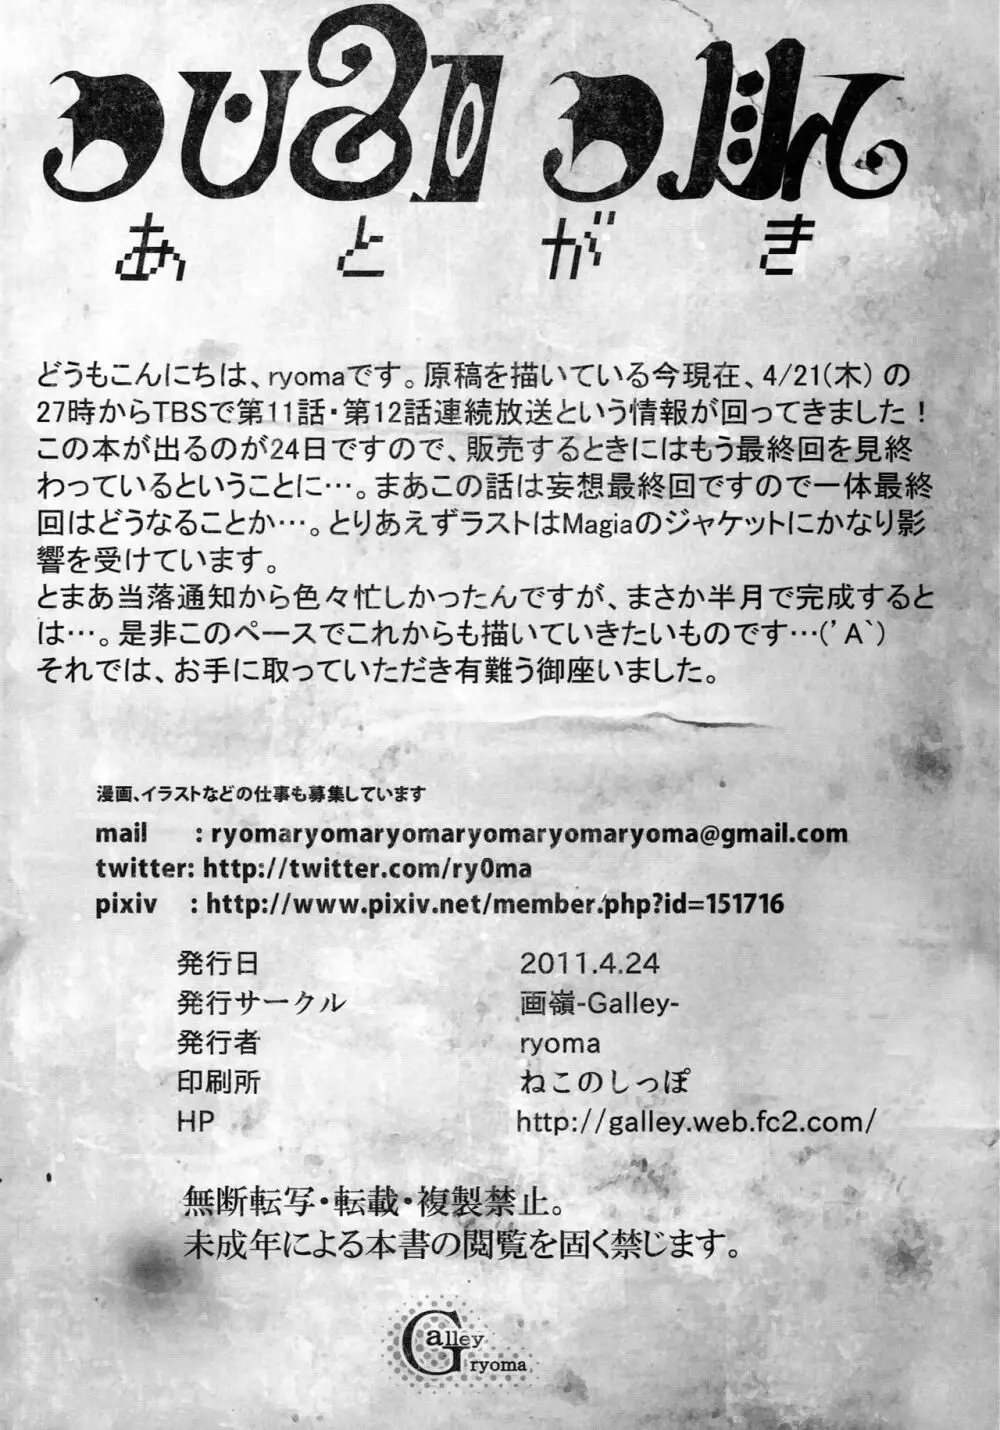 あとがき
どうもこんにちは、ryomaです。原稿を描いている今現在、4/21(木) の
27時からTBSで第11話・第12話連続放送という情報が回ってきました！
この本が出るのが24日ですので、販売するときにはもう最終回を見終
わっているということに…。まあこの話は妄想最終回ですので一体最終
回はどうなることか…。とりあえずラストはMagiaのジャケットにかなり影
響を受けています。
とまあ当落通知から色々忙しかったんですが、まさか半月で完成すると
は…。是非このペースでこれからも描いていきたいものです…(’A`)
それでは、お手に取っていただき有難う御座いました。
漫画、イラストなどの仕事も募集しています
mail : ryomaryomaryomaryomaryomaryoma@gmail.com
twitter: http://twitter.com/ry0ma
pixiv : http://www.pixiv.net/member.php?id=151716
発行日 2011.4.24
発行サークル 画嶺-Galley-
発行者 ryoma
印刷所 ねこのしっぽ
HP http://galley.web.fc2.com/
無断転写・転載・複製禁止。
未成年による本書の閲覧を固く禁じます。
Galley
ryoma